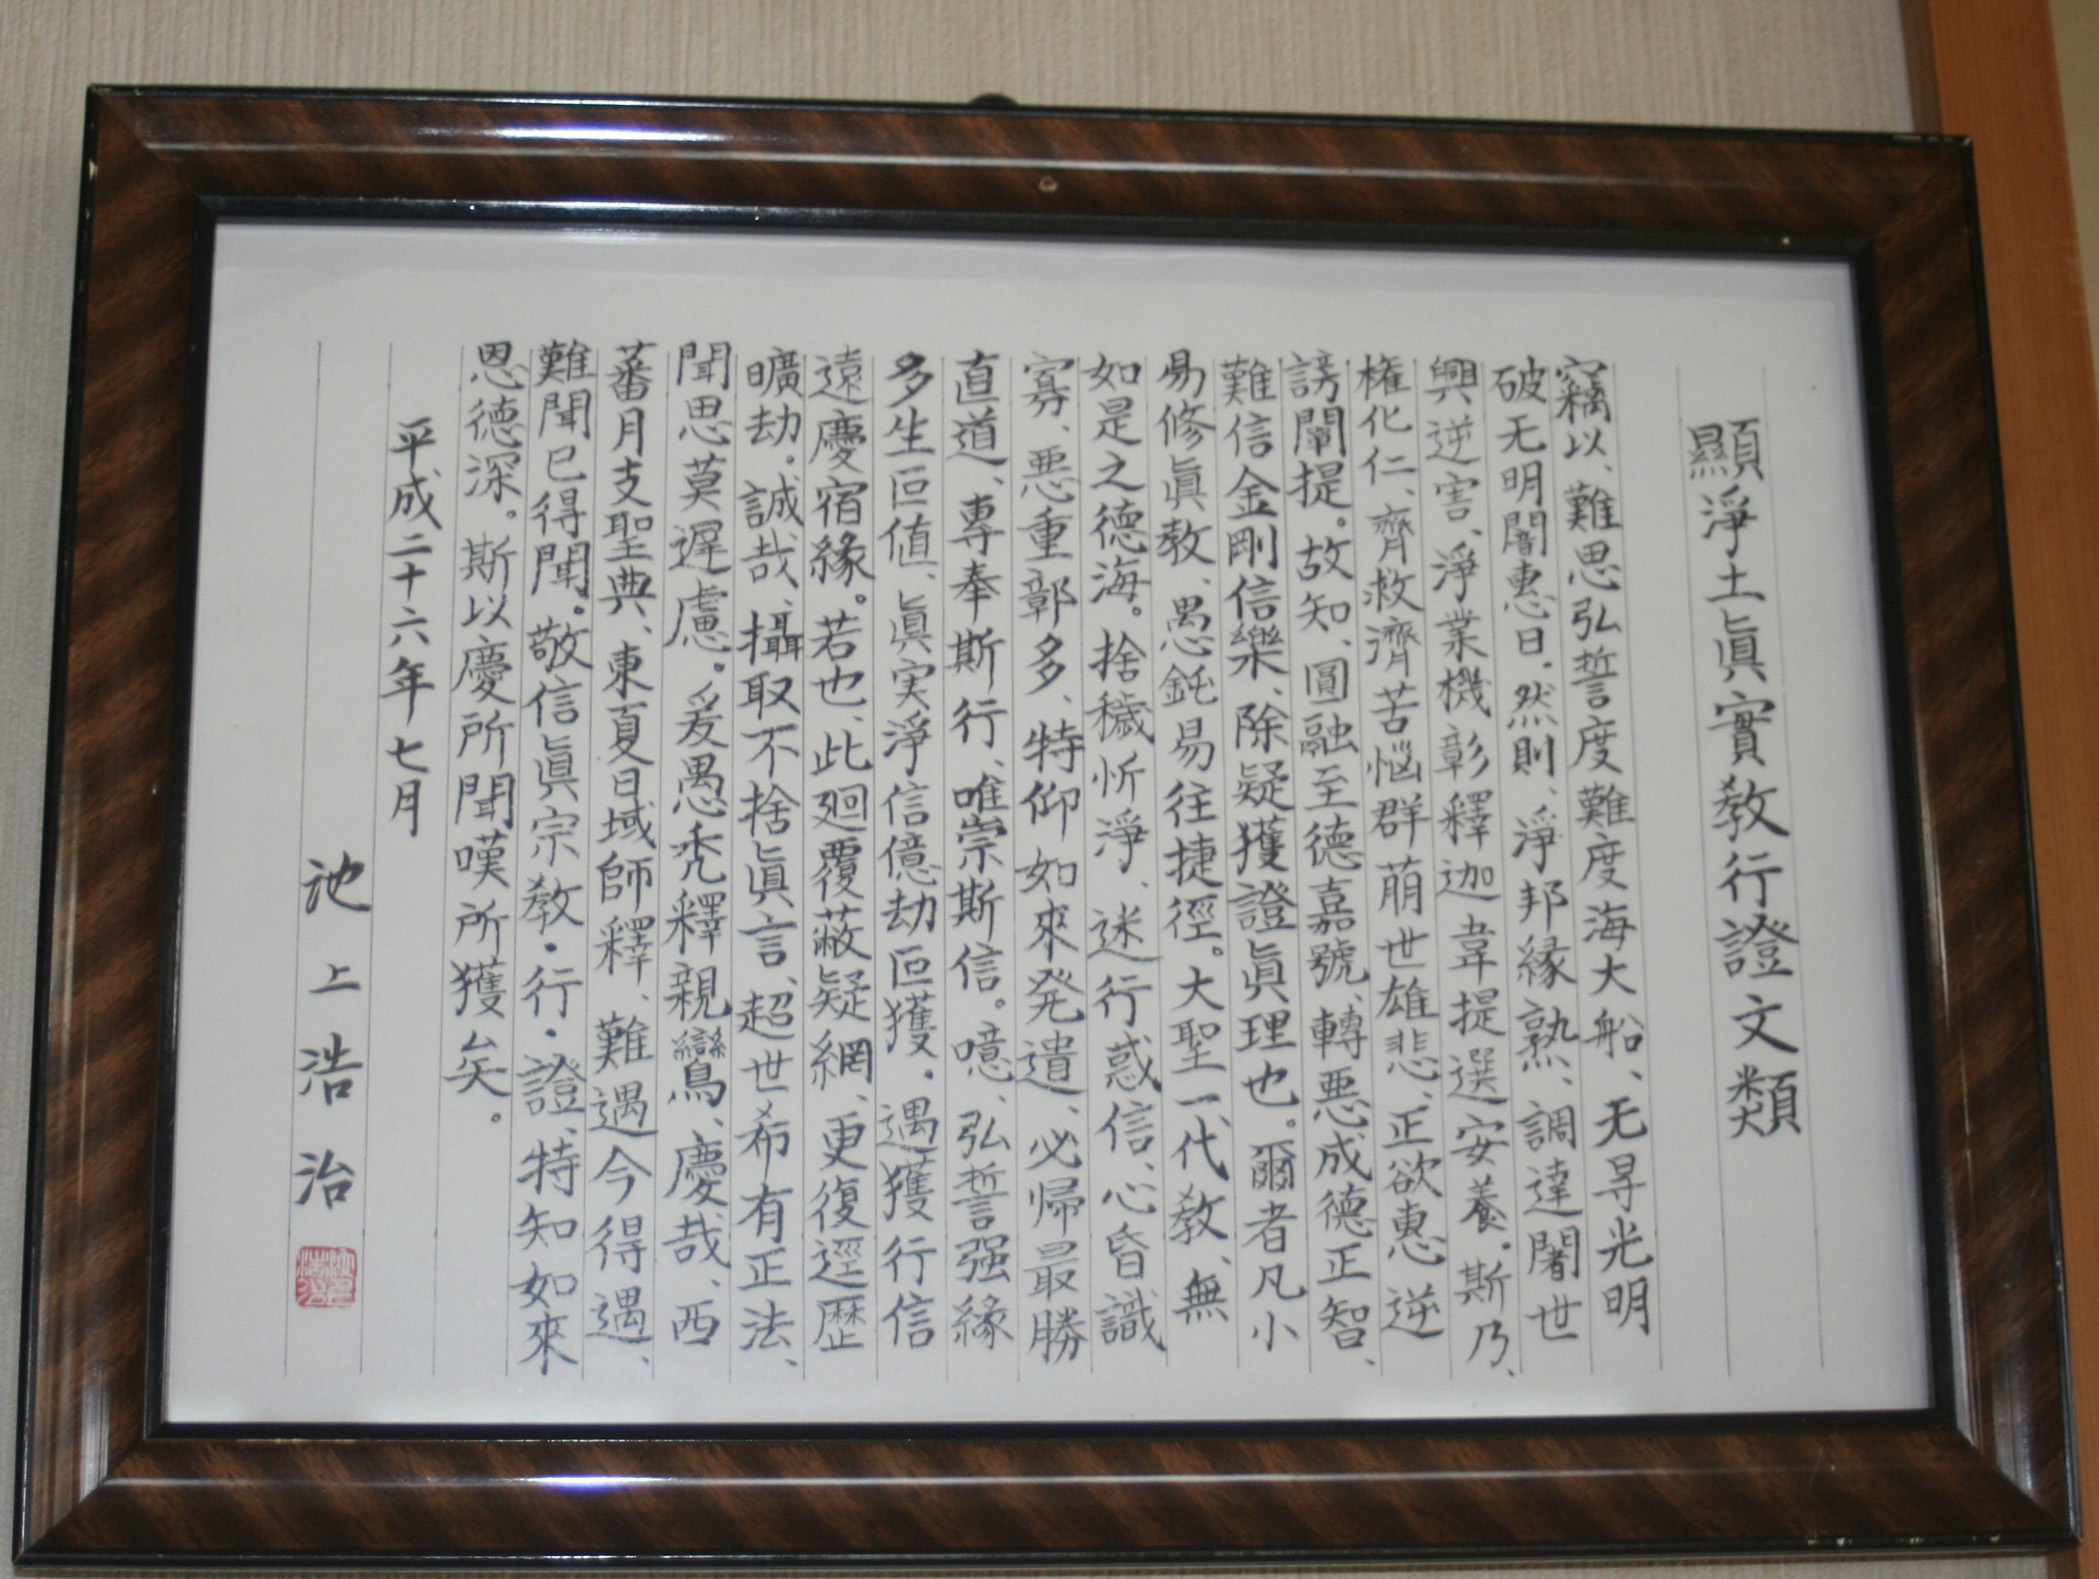 顯淨土眞實教行證文類
竊以、難思弘誓度難度海大船、无㝵光明
破无明闇惠日。然則、淨邦縁熟、調達闍世
興逆害、淨業機彰釋迦韋提選安養。斯乃、
権化仁、齊救濟苦悩群萠世雄悲、正欲惠逆
謗闡提。故知、圓融至德嘉號、轉悪成德正智、
難信金剛信樂、除疑獲證眞理也。爾者凡小
易修眞教、愚鈍易往捷徑。大聖一代教、無
如是之德海。捨穢忻淨、迷行惑信、心昏識
寡、悪重鄣多、特仰如來発遣、必帰最勝
直道、專奉斯行、唯崇斯信。噫、弘誓强緣
多生叵値、眞実淨信億劫叵獲。遇獲行信
遠慶宿緣。若也、此廻覆蔽疑網、更復逕歴
曠劫。誠哉、攝取不捨眞言、超世希有正法、
聞思莫遲慮。爰愚禿釋親鸞、慶哉、西
蕃月支聖典、東夏日域師釋、難遇今得遇、
難聞已得聞。敬信眞宗教・行・證、特知如來
恩德深。斯以慶所聞嘆所獲矣。
平成二十六年七月
池上浩治